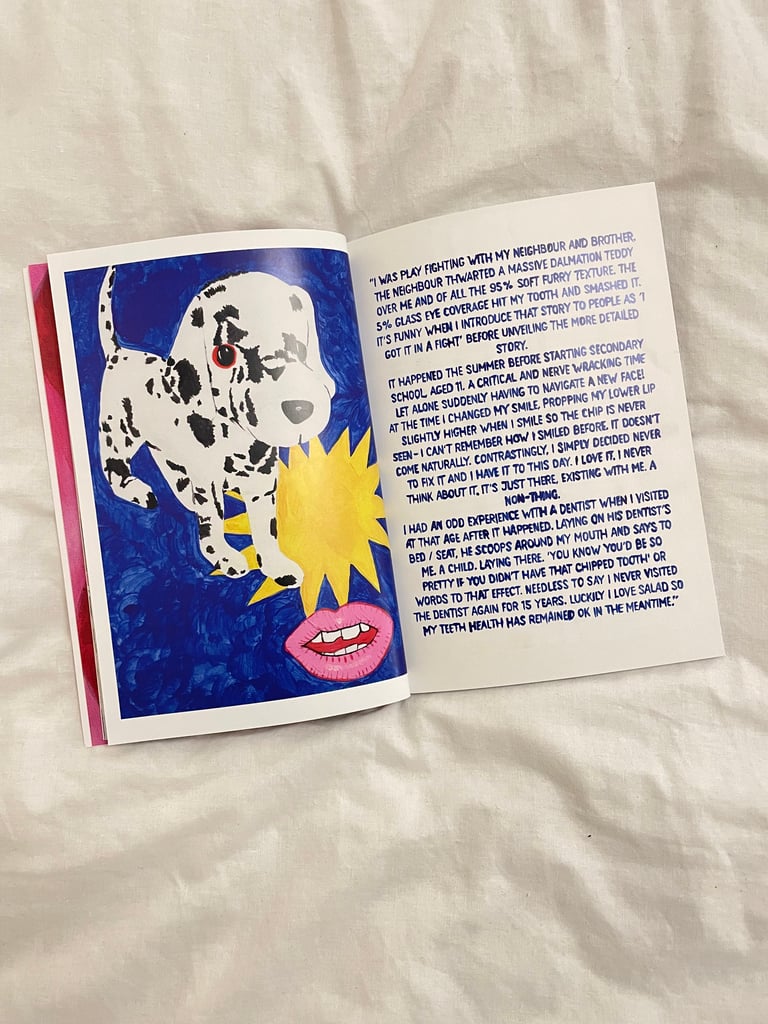 "I WAS PLAY FIGHTING WITH MY NEIGHBOUR AND BROTHER.
THE NEIGHBOUR THWARTED A MASSIVE DALMATION TEDDY
OVER ME AND OF ALL THE 95% SOFT FURRY TEXTURE. THE
5% GLASS EYE COVERAGE HIT MY TOOTH AND SMASHED IT.
IT'S FUNNY WHEN I INTRODUCE THAT STORY TO PEOPLE AS 'I
GOT IT IN A FIGHT' BEFORE UNVEILING THE MORE DETAILED
STORY.
IT HAPPENED THE SUMMER BEFORE STARTING SECONDARY
SCHOOL, AGED 11. A CRITICAL AND NERVE WRACKING TIME
LET ALONE SUDDENLY HAVING TO NAVIGATE A NEW FACE!
AT THE TIME I CHANGED MY SMILE, PROPPING MY LOWER LIP
SLIGHTLY HIGHER WHEN I SMILE SO THE CHIP IS NEVER
SEEN - I CAN'T REMEMBER HOW I SMILED BEFORE. IT DOESN'T
COME NATURALLY. CONTRASTINGLY, I SIMPLY DECIDED NEVER
TO FIX IT AND I HAVE IT TO THIS DAY. I LOVE IT. I NEVER
THINK ABOUT IT, IT'S JUST THERE, EXISTING WITH ME. A
NON-THING.
I HAD AN ODD EXPERIENCE WITH A DENTIST WHEN I VISITED
AT THAT AGE AFTER IT HAPPENED. LAYING ON HIS DENTIST'S
BED / SEAT, HE SCOOPS AROUND MY MOUTH AND SAYS TO
ME. A CHILD. LAYING THERE. 'YOU KNOW YOU'D BE SO
PRETTY IF YOU DIDN'T HAVE THAT CHIPPED TOOTH' OR
WORDS TO THAT EFFECT. NEEDLESS TO SAY I NEVER VISITED
THE DENTIST AGAIN FOR 15 YEARS. LUCKILY I LOVE SALAD SO
MY TEETH HEALTH HAS REMAINED OK IN THE MEANTIME."